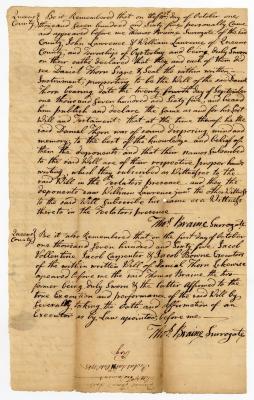 Queens County } Be it Remembered that on the first day of October one
thousand Seven hundred and Sixty five personally came
and appeared before me Thomas Braine Surrogate of the said
County John Lawrence & William Lawrence of Queens
County and being duly Sworn
on their oaths declared that they and each of them did
see Daniel Thorn Sign & Seal the within written
Instrument purporting to be the Will of the said Daniel
Thorn bearing date the twenty fourth day of September
one thousand Seven hundred and Sixty five, and heard
him publish and declare the same as and for his last
Will and Testament: that at the time thereof he the
said Daniel Thorn was of sound disposing mind and
memory to the best of the knowledge and belief of
them the deponents and that their names Subscribed
to the said Will are of their respective proper hands
writing which they subscribed as Witnesses to the
said Will in the Testators presence and they the
deponents saw William Lawrence just the other Witness
to the said Will Subscribe his name as a Witness
thereto in the Testators presence
Thos. Braine Surrogate
Queens County } Be it also Remembered that on the first day of October
one thousand Seven hundred and Sixty five, Jacob
Vollentine Jacob Carpenter & Jacob Bowne Executors
of the within written Will of Daniel Thorn Likewise
appeared before me the said Thomas Braine the two
former being duly Sworn & the latter affirmed to the
true Execution and performance of the said Will by
Severally taking the Oath and affirmation of an
Executor as by Law apointed, before me
Thos. Braine Surrogate